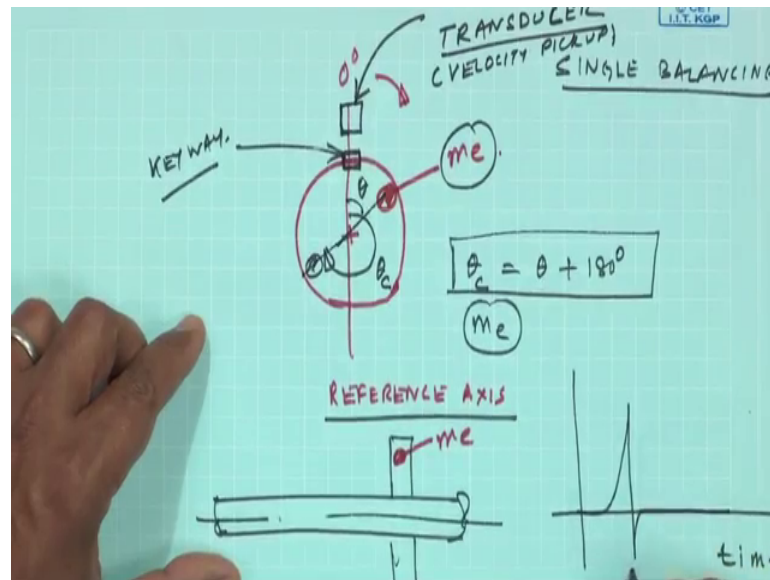 © CET
I.I.T. KGP
TRANSDUCER
(VELOCITY PICKUP)
SINGLE BALANCING
0°
KEYWAY.
me.
θ
θc
θc = θ + 180°
me
REFERENCE AXIS
me
tim